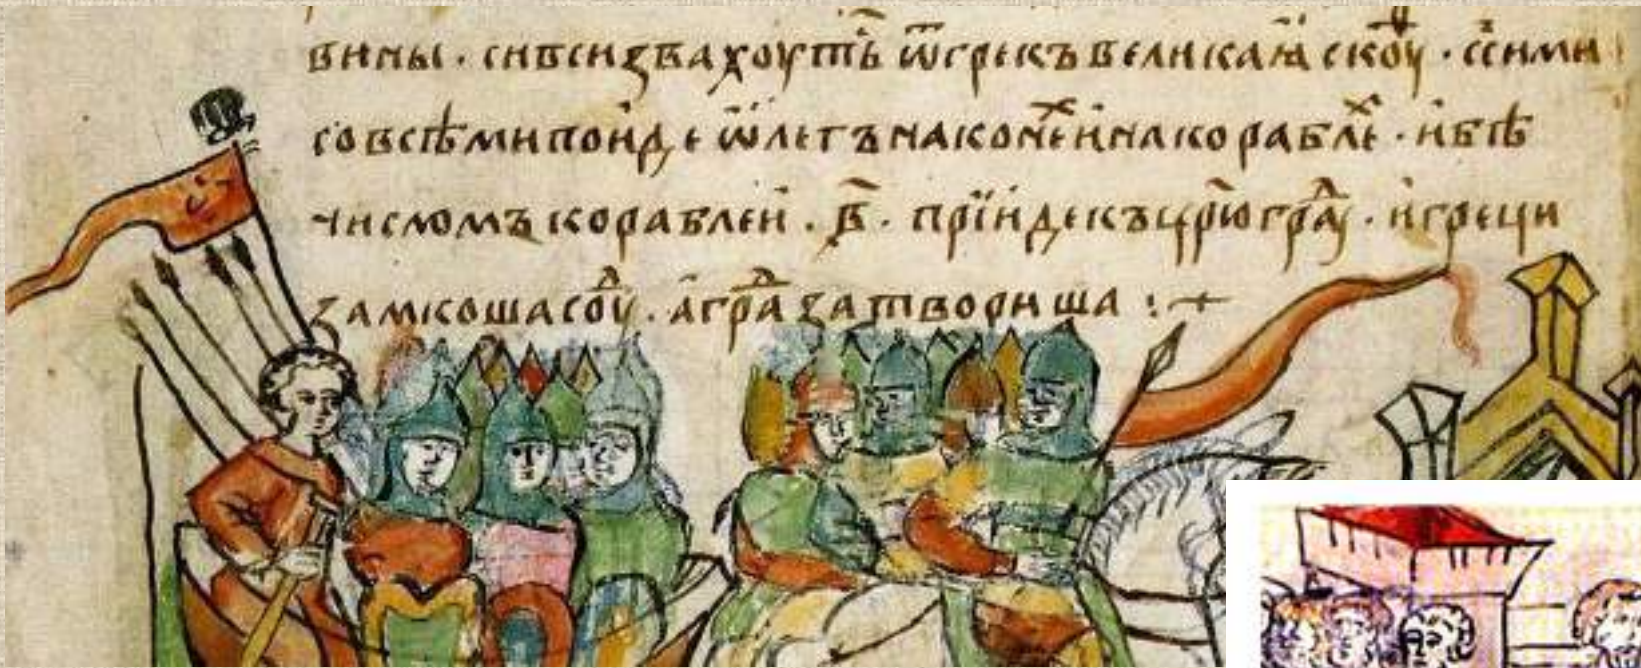 вины · сивсизвахоуть ѿгрекъвеликаꙗ скоⷴу · сⷭ҇сими
совсѣмипоиде ѡлегънаконеⷯинакораблеⷯ · ибѣ
числомъкораблеи · в҃ · прїидекъцр҃югра · игреци
замкошасоуⷣ · аграⷣзатвориша :~